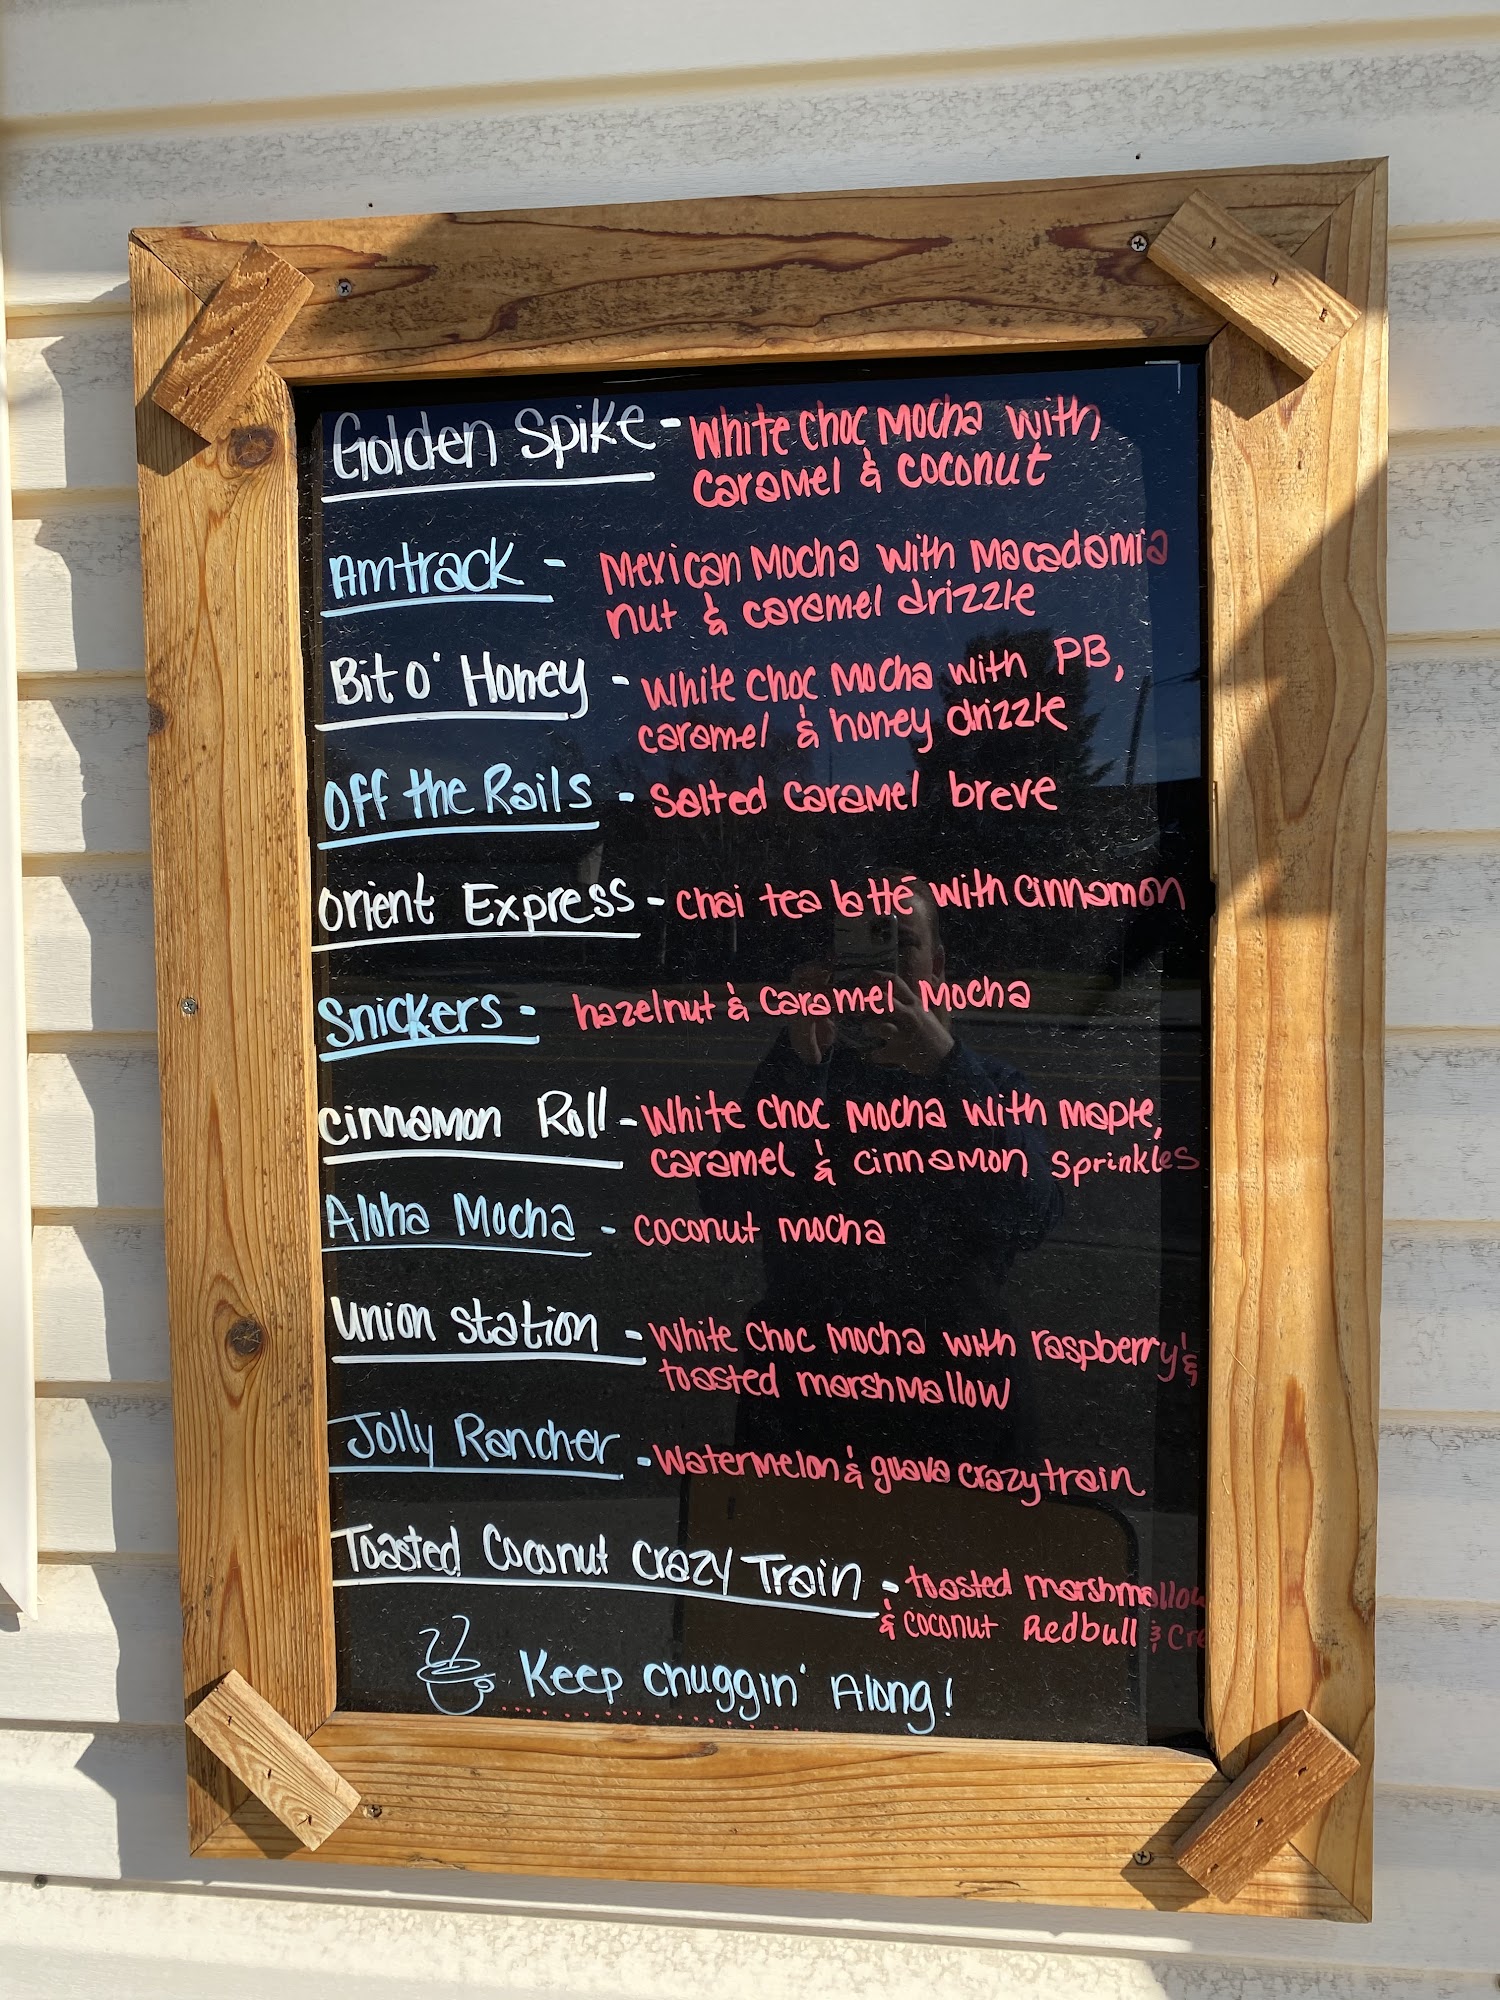 Golden Spike - White Choc Mocha with
caramel & coconut
Amtrack - Mexican Mocha with Macadamia
nut & caramel drizzle
Bit O' Honey - White Choc Mocha with PB,
caramel & honey drizzle
Off the Rails - Salted Caramel breve
Orient Express - Chai tea latté with cinnamon
Snickers - hazelnut & Caramel Mocha
Cinnamon Roll - White Choc Mocha with maple,
caramel & cinnamon sprinkles
Aloha Mocha - Coconut mocha
Union Station - White Choc Mocha with raspberry &
toasted marshmallow
Jolly Rancher - Watermelon & guava crazy train
Toasted Coconut Crazy Train - toasted marshmallow
& coconut Redbull &
Keep Chuggin' Along!